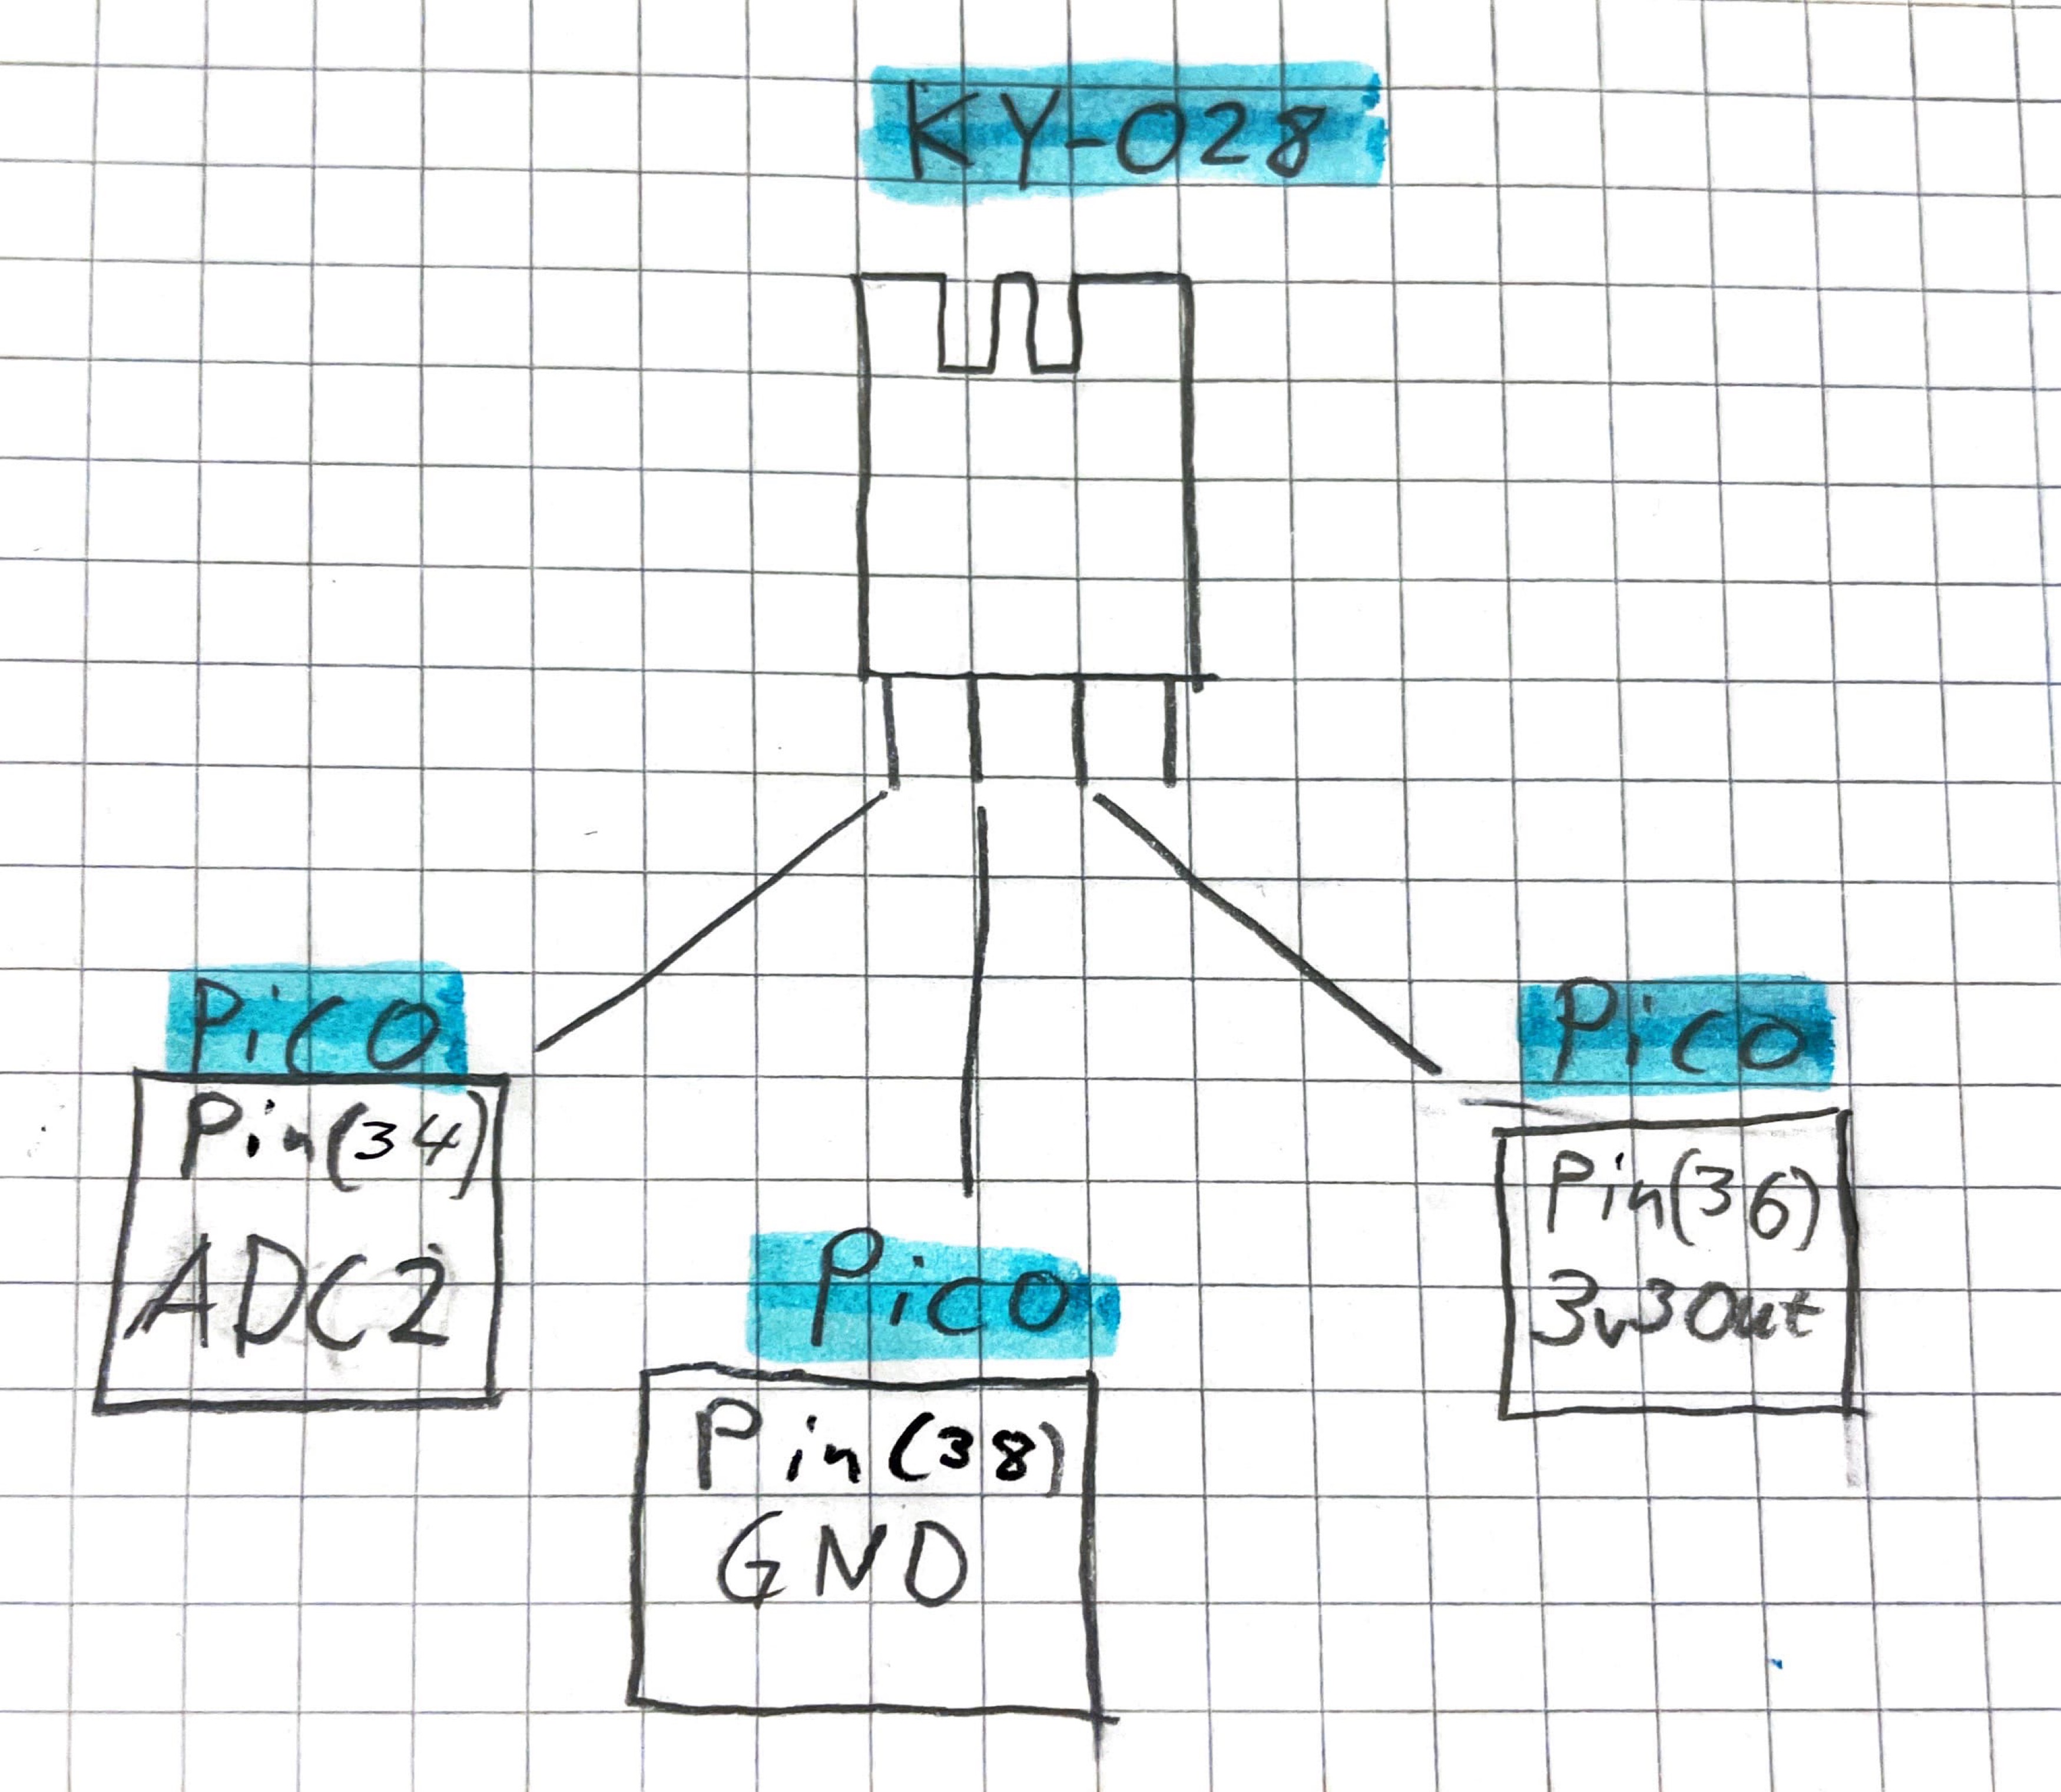 KY-028
Pico
Pin(34)
ADC2
Pico
Pin(38)
GND
Pico
Pin(36)
3v3Out